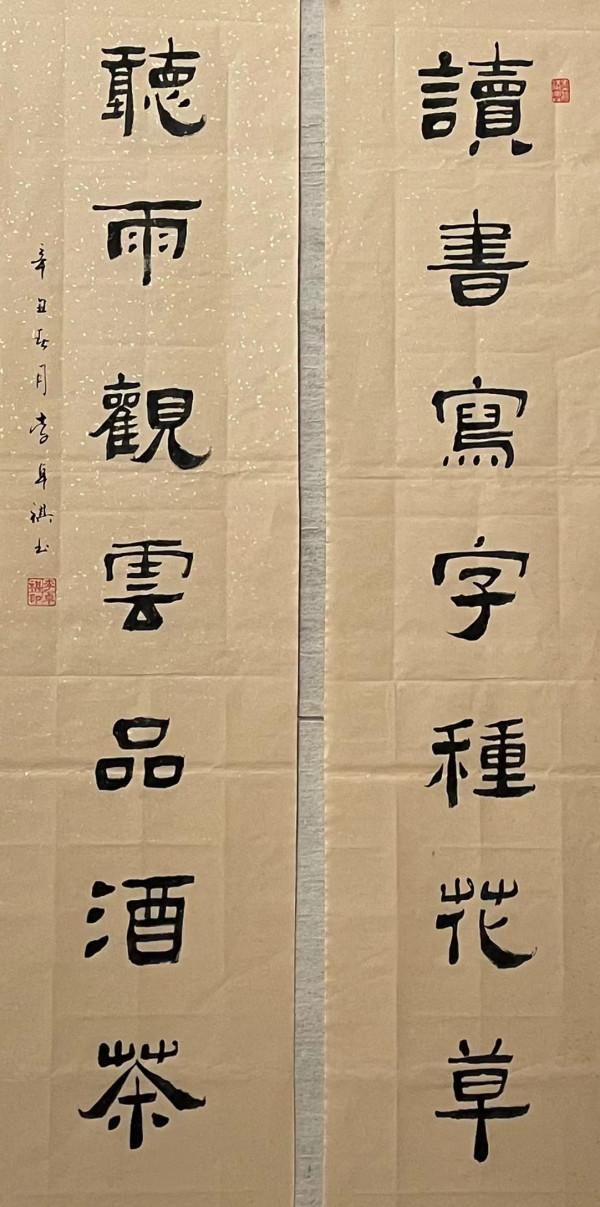 讀書寫字種花草
聽雨觀雲品酒茶
辛丑春月李卓祺书
李卓祺印